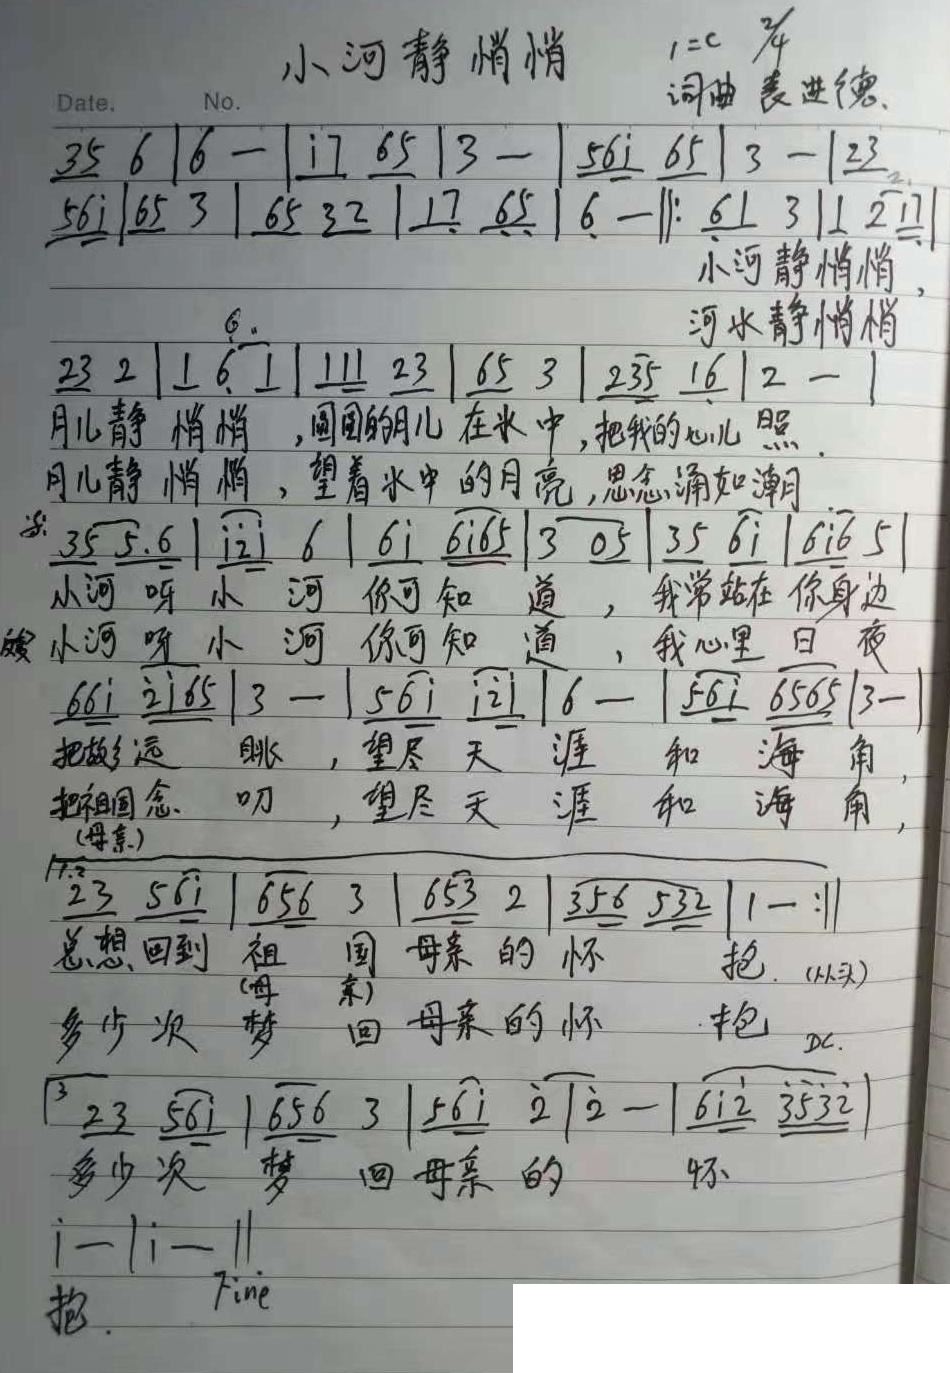 小河静悄悄 1=C 2/4
Date. No. 词曲 袁进德.
35 6 | 6 — | i7 65 | 3 — | 56i 65 | 3 — | 23
56i | 65 3 | 65 32 | 17 65 | 6 — ‖: 61 3 | 1 2 17 |
小河静悄悄,
河水静悄悄
23 2 | 1 6 1 | 111 23 | 65 3 | 235 16 | 2 — |
月儿静悄悄,圆圆的月儿在水中,把我的心儿照.
月儿静悄悄,望着水中的月亮,思念涌如潮
35 5.6 | i2i 6 | 6i 6i65 | 3 05 | 35 6i | 6i6 5 |
小河呀小河你可知道,我常站在你身边
小河呀小河你可知道,我心里日夜
66i 2i65 | 3 — | 56i i2i | 6 — | 56i 6565 | 3 — |
把故乡远眺,望尽天涯和海角,
把祖国念叨,望尽天涯和海角,
(母亲)
1.2
23 56i | 656 3 | 653 2 | 356 532 | 1 — :‖
总想回到祖国母亲的怀抱. (从头)
(母亲)
多少次梦回母亲的怀抱 DC.
3
23 56i | 656 3 | 56i 2 | 2 — | 6i2 3532 |
多少次梦回母亲的怀
i — | i — ‖
抱. Fine